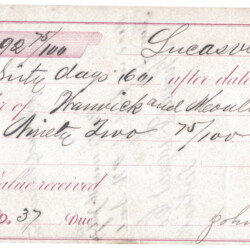 92 75/100 Lucasv
Sixty days after date
r of Warwick and
Ninety Two 75/100
Value received
No. 37 Due
John